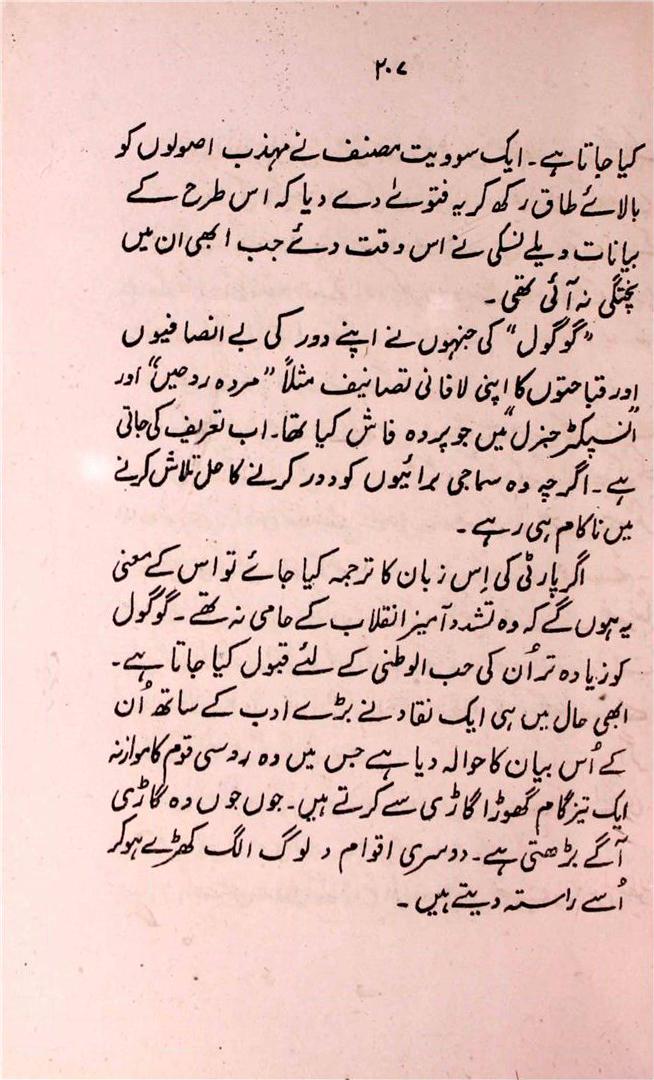 ۲۰۷
کیا جاتا ہے۔ ایک سوویت مصنف نے مہذب اصولوں کو
بالائے طاق رکھ کر یہ فتوےٰ دے دیا کہ اس طرح کے
بیانات ویلے نسکی نے اس وقت دئے جب ابھی ان میں
پختگی نہ آئی تھی۔
"گوگول" کی جنہوں نے اپنے دور کی بے انصافیوں
اور قباحتوں کا اپنی لافانی تصانیف مثلاً "مردہ روحیں" اور
"انسپکٹر جنرل" میں جو پردہ فاش کیا تھا۔ اب تعریف کی جاتی
ہے۔ اگرچہ وہ سماجی برائیوں کو دور کرنے کا حل تلاش کرنے
میں ناکام ہی رہے۔
اگر پارٹی کی اِس زبان کا ترجمہ کیا جائے تو اس کے معنی
یہ ہوں گے کہ وہ تشدد آمیز انقلاب کے حامی نہ تھے۔ گوگول
کو زیادہ تر اُن کی حب الوطنی کے لئے قبول کیا جاتا ہے۔
ابھی حال میں ہی ایک نقاد نے بڑے ادب کے ساتھ اُن
کے اُس بیان کا حوالہ دیا ہے جس میں وہ روسی قوم کا موازنہ
ایک تیز گام گھوڑا گاڑی سے کرتے ہیں۔ جوں جوں وہ گاڑی
آگے بڑھتی ہے۔ دوسری اقوام و لوگ الگ کھڑے ہو کر
اُسے راستہ دیتے ہیں۔